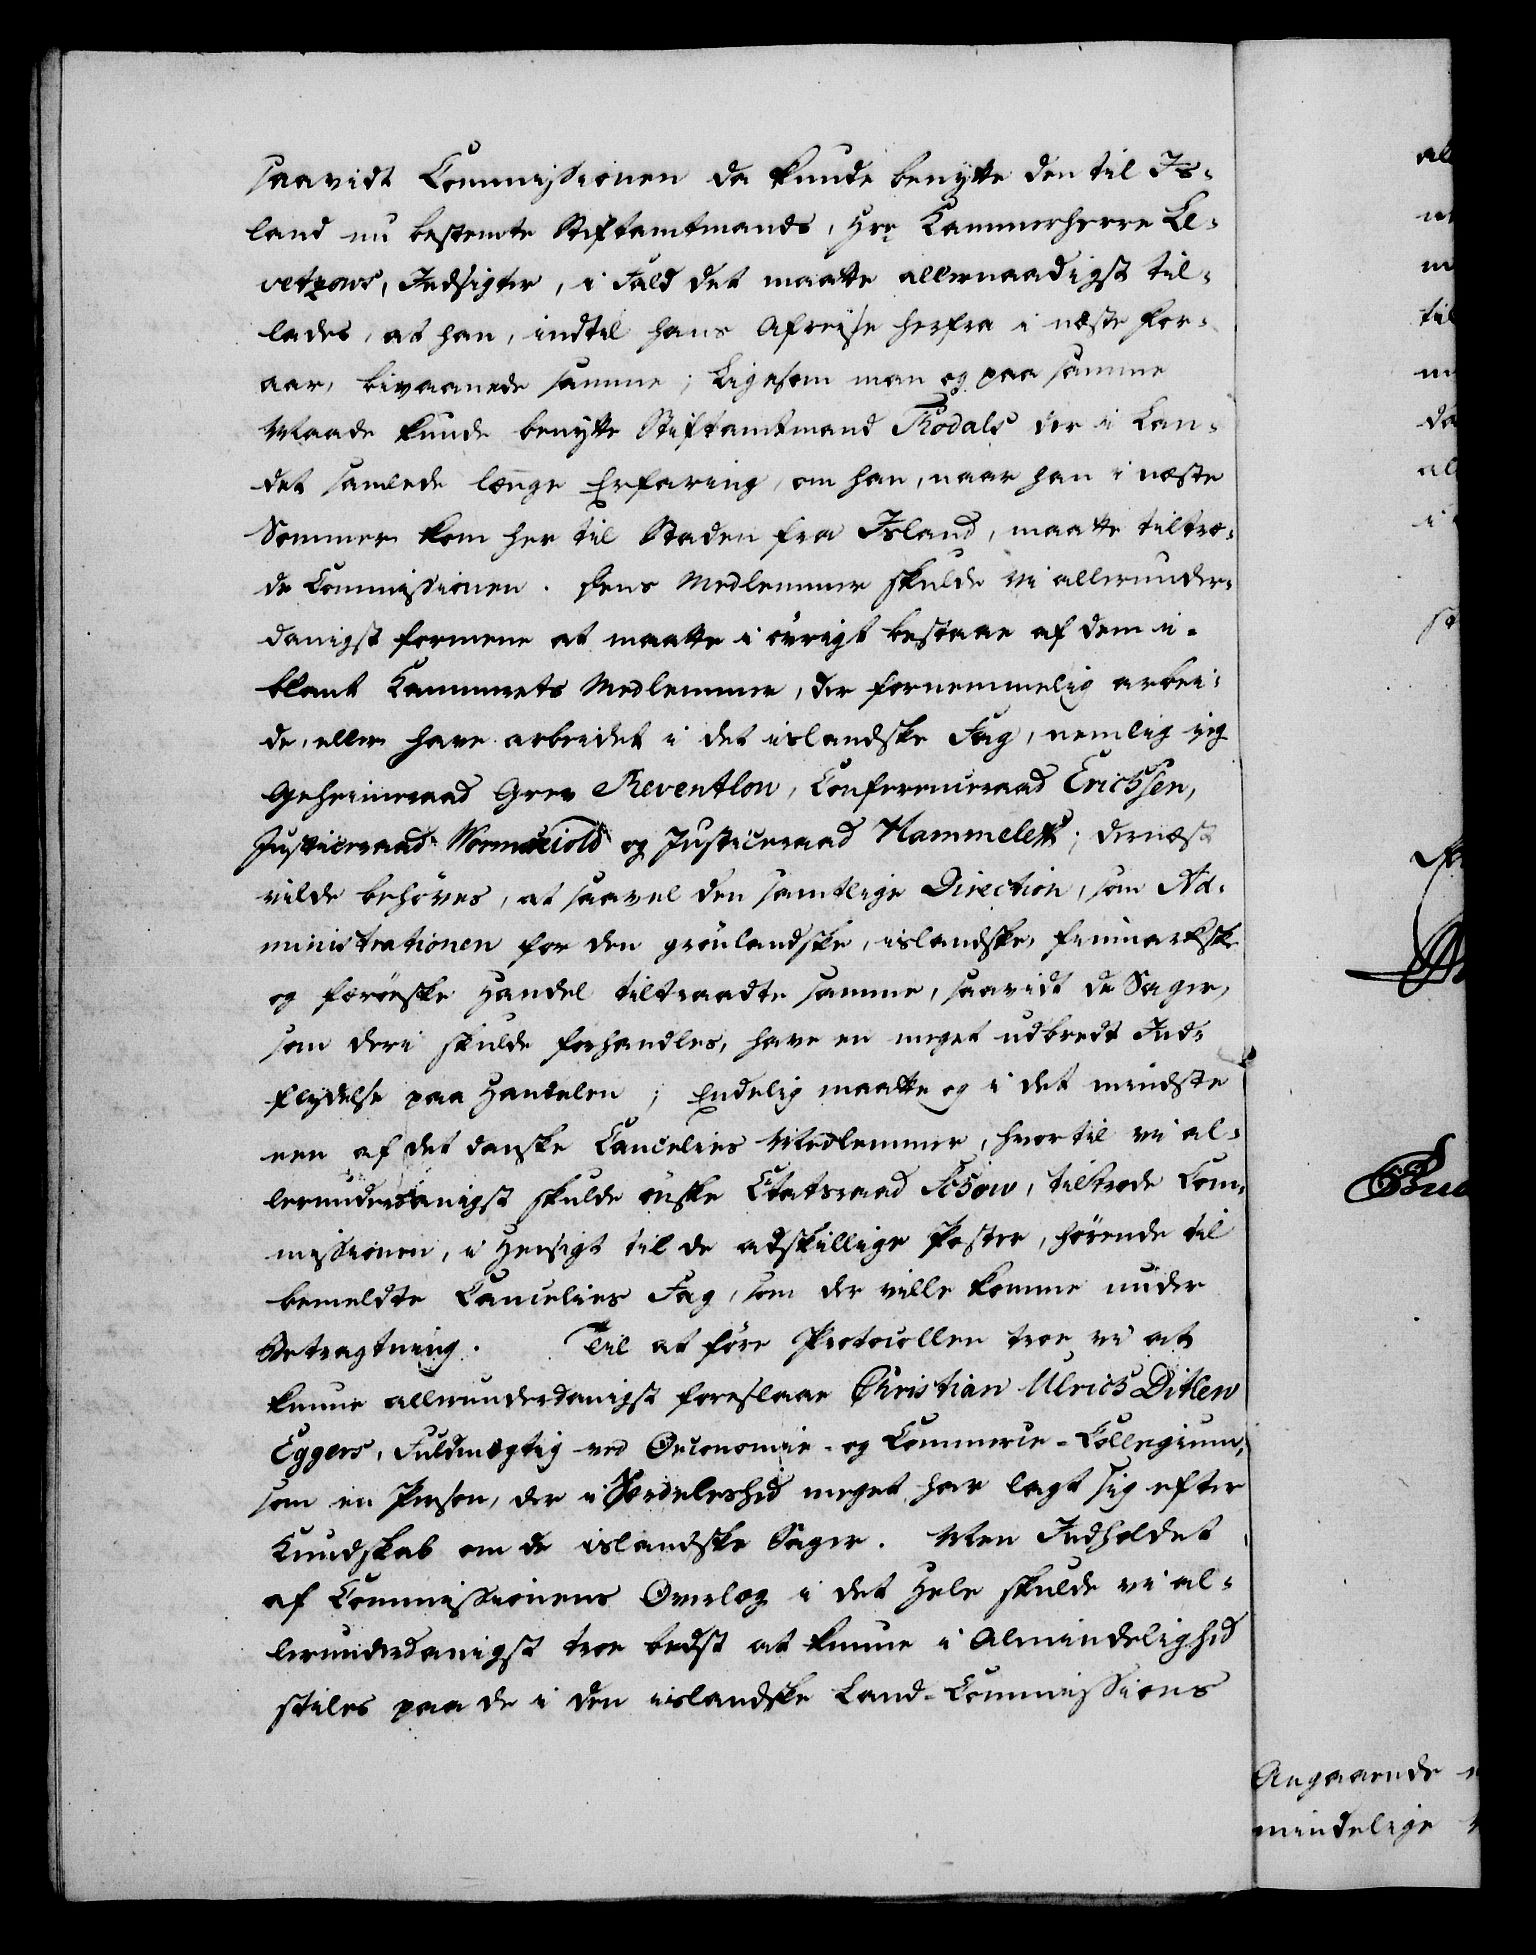 saavidt Commissionen da kunde benytte den til Is-
land nu bestemte Stiftamtmands, Hrr Kammerherre Le-
vetzows, Indsigter, i Fald det maatte allernaadigst til-
lades, at han, indtil hans Afreise herfra i næste For-
aar, bivaanede samme; Ligesom man og paa samme
Maade kunde benytte Stiftamtmand Thodals der i Lan-
det samlede lange Erfaring, om han, naar han i næste
Sommer kom her til Staden fra Island, maatte tiltræ-
de Commissionen. Dens Medlemmer skulde vi allerunder-
danigst formene at maatte i övrigt bestaae af dem i-
blant Kammerets Medlemmer, der fornemmelig arbei-
de, eller have arbeidet i det islandske Fag, nemlig jeg
Geheimeraad Grev Reventlow, Conferenceraad Erichsen,
Justiceraad Wormskiold og Justiceraad Hammeleff; dernæst
vilde behöves, at saavel den samtlige Direction, som Ad-
ministrationen for den grönlandske, islandske, finmarkske
og færöeske Handel tiltraadte samme, saavidt de Sager,
som deri skulde forhandles, have en meget udbredt Ind-
flydelse paa Handelen; Endelig maatte og i det mindste
een af det danske Cancelies Medlemmer, hvortil vi al-
lerunderdanigst skulde önske Etatsraad Schow, tiltræde Com-
missionen, i Hensigt til de adskillige Poster, hörende til
bemeldte Cancelies Fag, som der ville komme under
Betragtning. Til at före Protocollen troe vi at
kunne allerunderdanigst foreslaae Christian Ulrich Ditlew
Eggers, Fuldmægtig ved Oeconomie- og Commerce-Collegium,
som en Person, der i Særdeleshed meget har lagt sig efter
Kundskab om de islandske Sager. Men Indholdet
af Commissionens Overlæg i det Hele skulde vi al-
lerunderdanigst troe bedst at kunne i Almindelighed
stiles paa de i den islandske Land-Commissions
Angaaende
mindelige